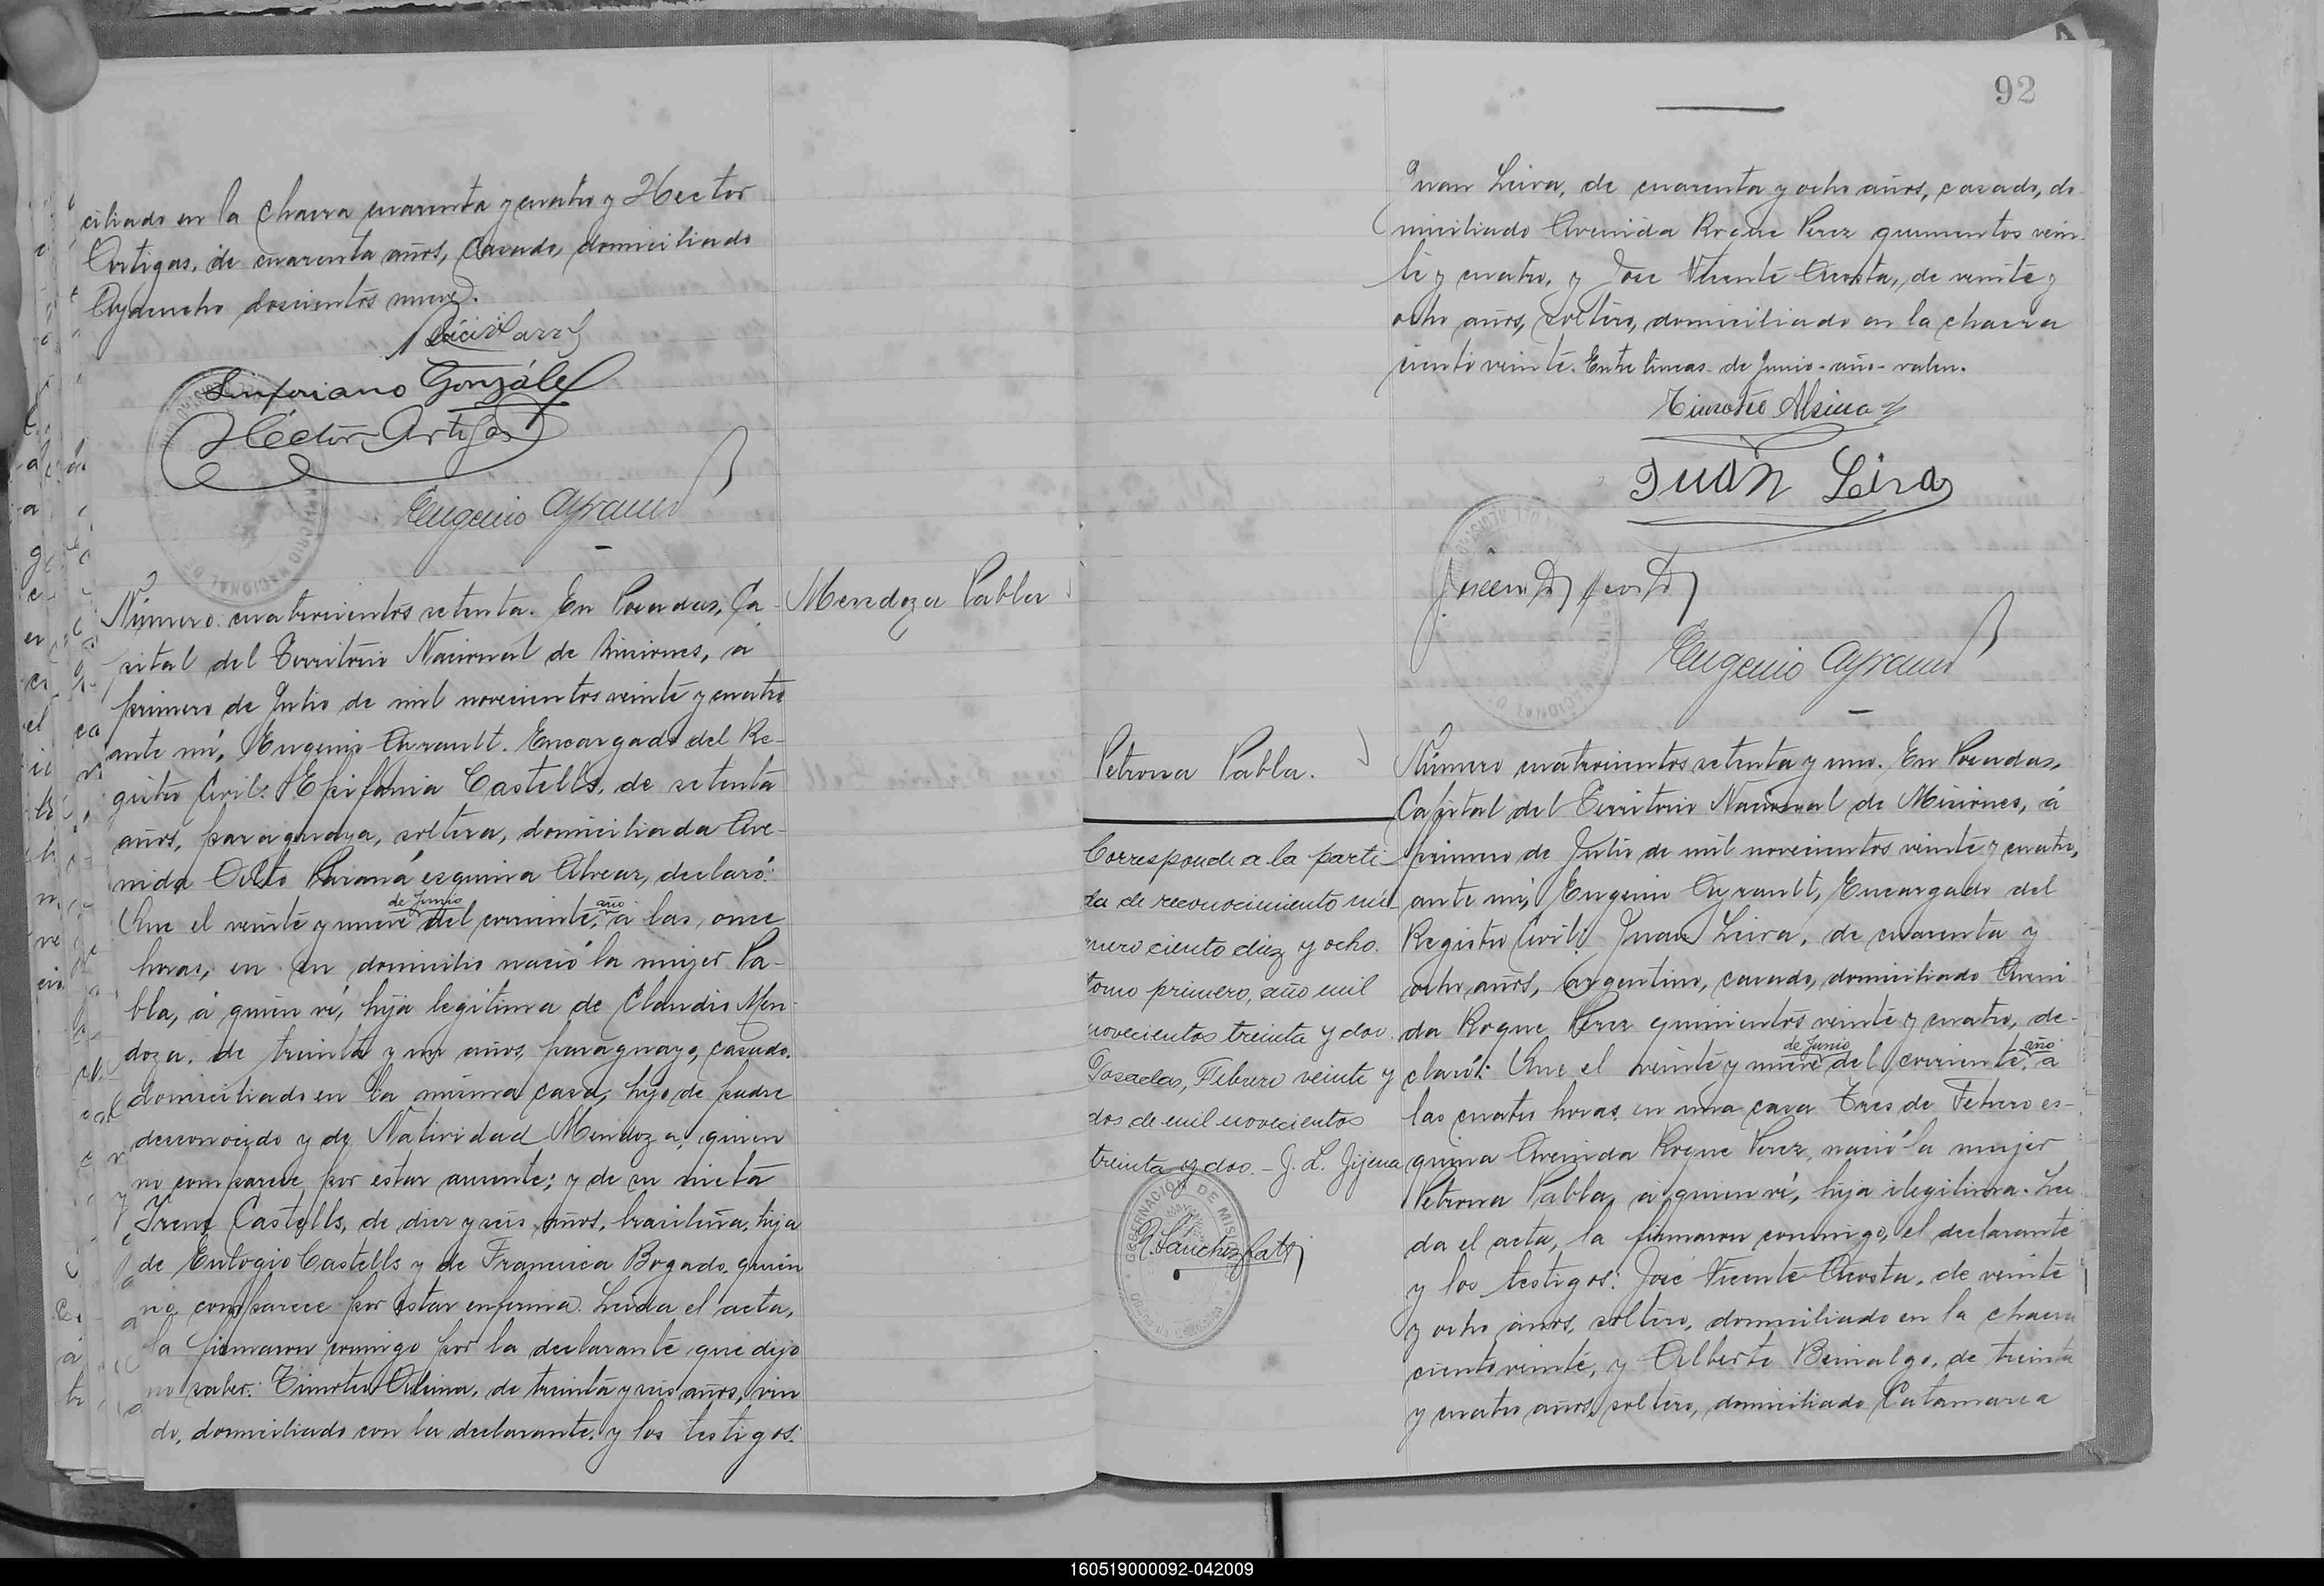 ciliado en la chacra cuarenta y cuatro y Hector
Artigas, de cuarenta años, casado, domiciliado
Ayacucho doscientos nueve.
Sinforiano González
Héctor Artigas
Eugenio Ayrault
Número cuatrocientos setenta. En Posadas, Ca-
pital del Territorio Nacional de Misiones, a
primero de Julio de mil novecientos veinte y cuatro
ante mí, Eugenio Ayrault. Encargado del Re-
gistro Civil: Epifania Castells, de setenta
años, paraguaya, soltera, domiciliada Ave-
nida Alto Paraná esquina Alvear, declaró:
de Junio año
Que el veinte y nueve del corriente, a las once
horas, en su domicilio nació la mujer Pa-
bla, á quien ví, hija legitima de Claudio Men-
doza, de treinta y un años, paraguayo, casado,
domiciliado en la misma casa, hijo de padre
desconocido y de Natividad Mendoza, quien
no comparece por estar ausente; y de su nieta
Irene Castells, de diez y seis años, brasileña, hija
de Eulogio Castells y de Francisca Bogado, quien
no comparece por estar enferma. Leida el acta,
la firmaron conmigo por la declarante que dijo
no saber: Timoteo Alsina, de treinta y seis años, viu
do, domiciliado con la declarante, y los testigos:
Mendoza Pabla
92
Juan Leiva, de cuarenta y ocho años, casado, do
miciliado Avenida Roque Perez quinientos vein-
te y cuatro, y José Vicente Acosta, de veinte y
ocho años, soltero, domiciliado en la chacra
ciento veinte. Entre lineas de Junio-año-valen.
Timoteo Alsina
Juan Leiva
Eugenio Ayrault
Petrona Pabla.
Corresponde a la parti-
da de reconocimiento nú-
mero ciento diez y ocho.
tomo primero, año mil
novecientos treinta y dos.
Posadas, Febrero veinte y
dos de mil novecientos
treinta y dos. - J. L. Jijena
GOBERNACION DE MISIONES
Número cuatrocientos setenta y uno. En Posadas,
Capital del Territorio Nacional de Misiones, á
primero de Julio de mil novecientos veinte y cuatro,
ante mí, Eugenio Ayrault, Encargado del
Registro Civil: Juan Leiva, de cuarenta y
ocho años, argentino, casado, domiciliado Aveni
da Roque Perez quinientos veinte y cuatro, de-
de Junio año
claró: Que el veinte y nueve del corriente, a
las cuatro horas en una casa Tres de Febrero es-
quina Avenida Roque Perez, nació la mujer
Petrona Pabla, á quien ví, hija ilegitima. Lei
da el acta, la firmaron conmigo, el declarante
y los testigos: José Vicente Acosta, de veinte
y ocho años, soltero, domiciliado en la chacra
ciento veinte, y Alberto Benialgo, de treinta
y cuatro años, soltero, domiciliado Catamarca
160519000092-042009